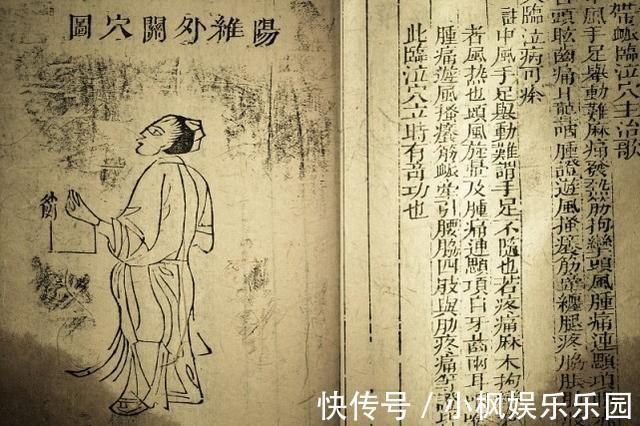 陽維外關穴圖
帶脈臨泣穴主治歌
中風手足舉動難麻痛發熱筋拘攣頭風腫痛連顋項
頭眩齒痛耳聾咽腫證遊風搔癢筋牽纏腿疼脇脹肋
臨泣病可痊
註中風手足舉動難謂手足不隨也若疼痛麻木拘
者風熱也頭風旋暈及腫痛連顋項目牙齒兩耳咽
腫痛遊風搔癢筋脈牽引腰脇四肢與肋疼痛等
此臨泣穴立時有奇功也
快传号 / 小枫娱乐乐园